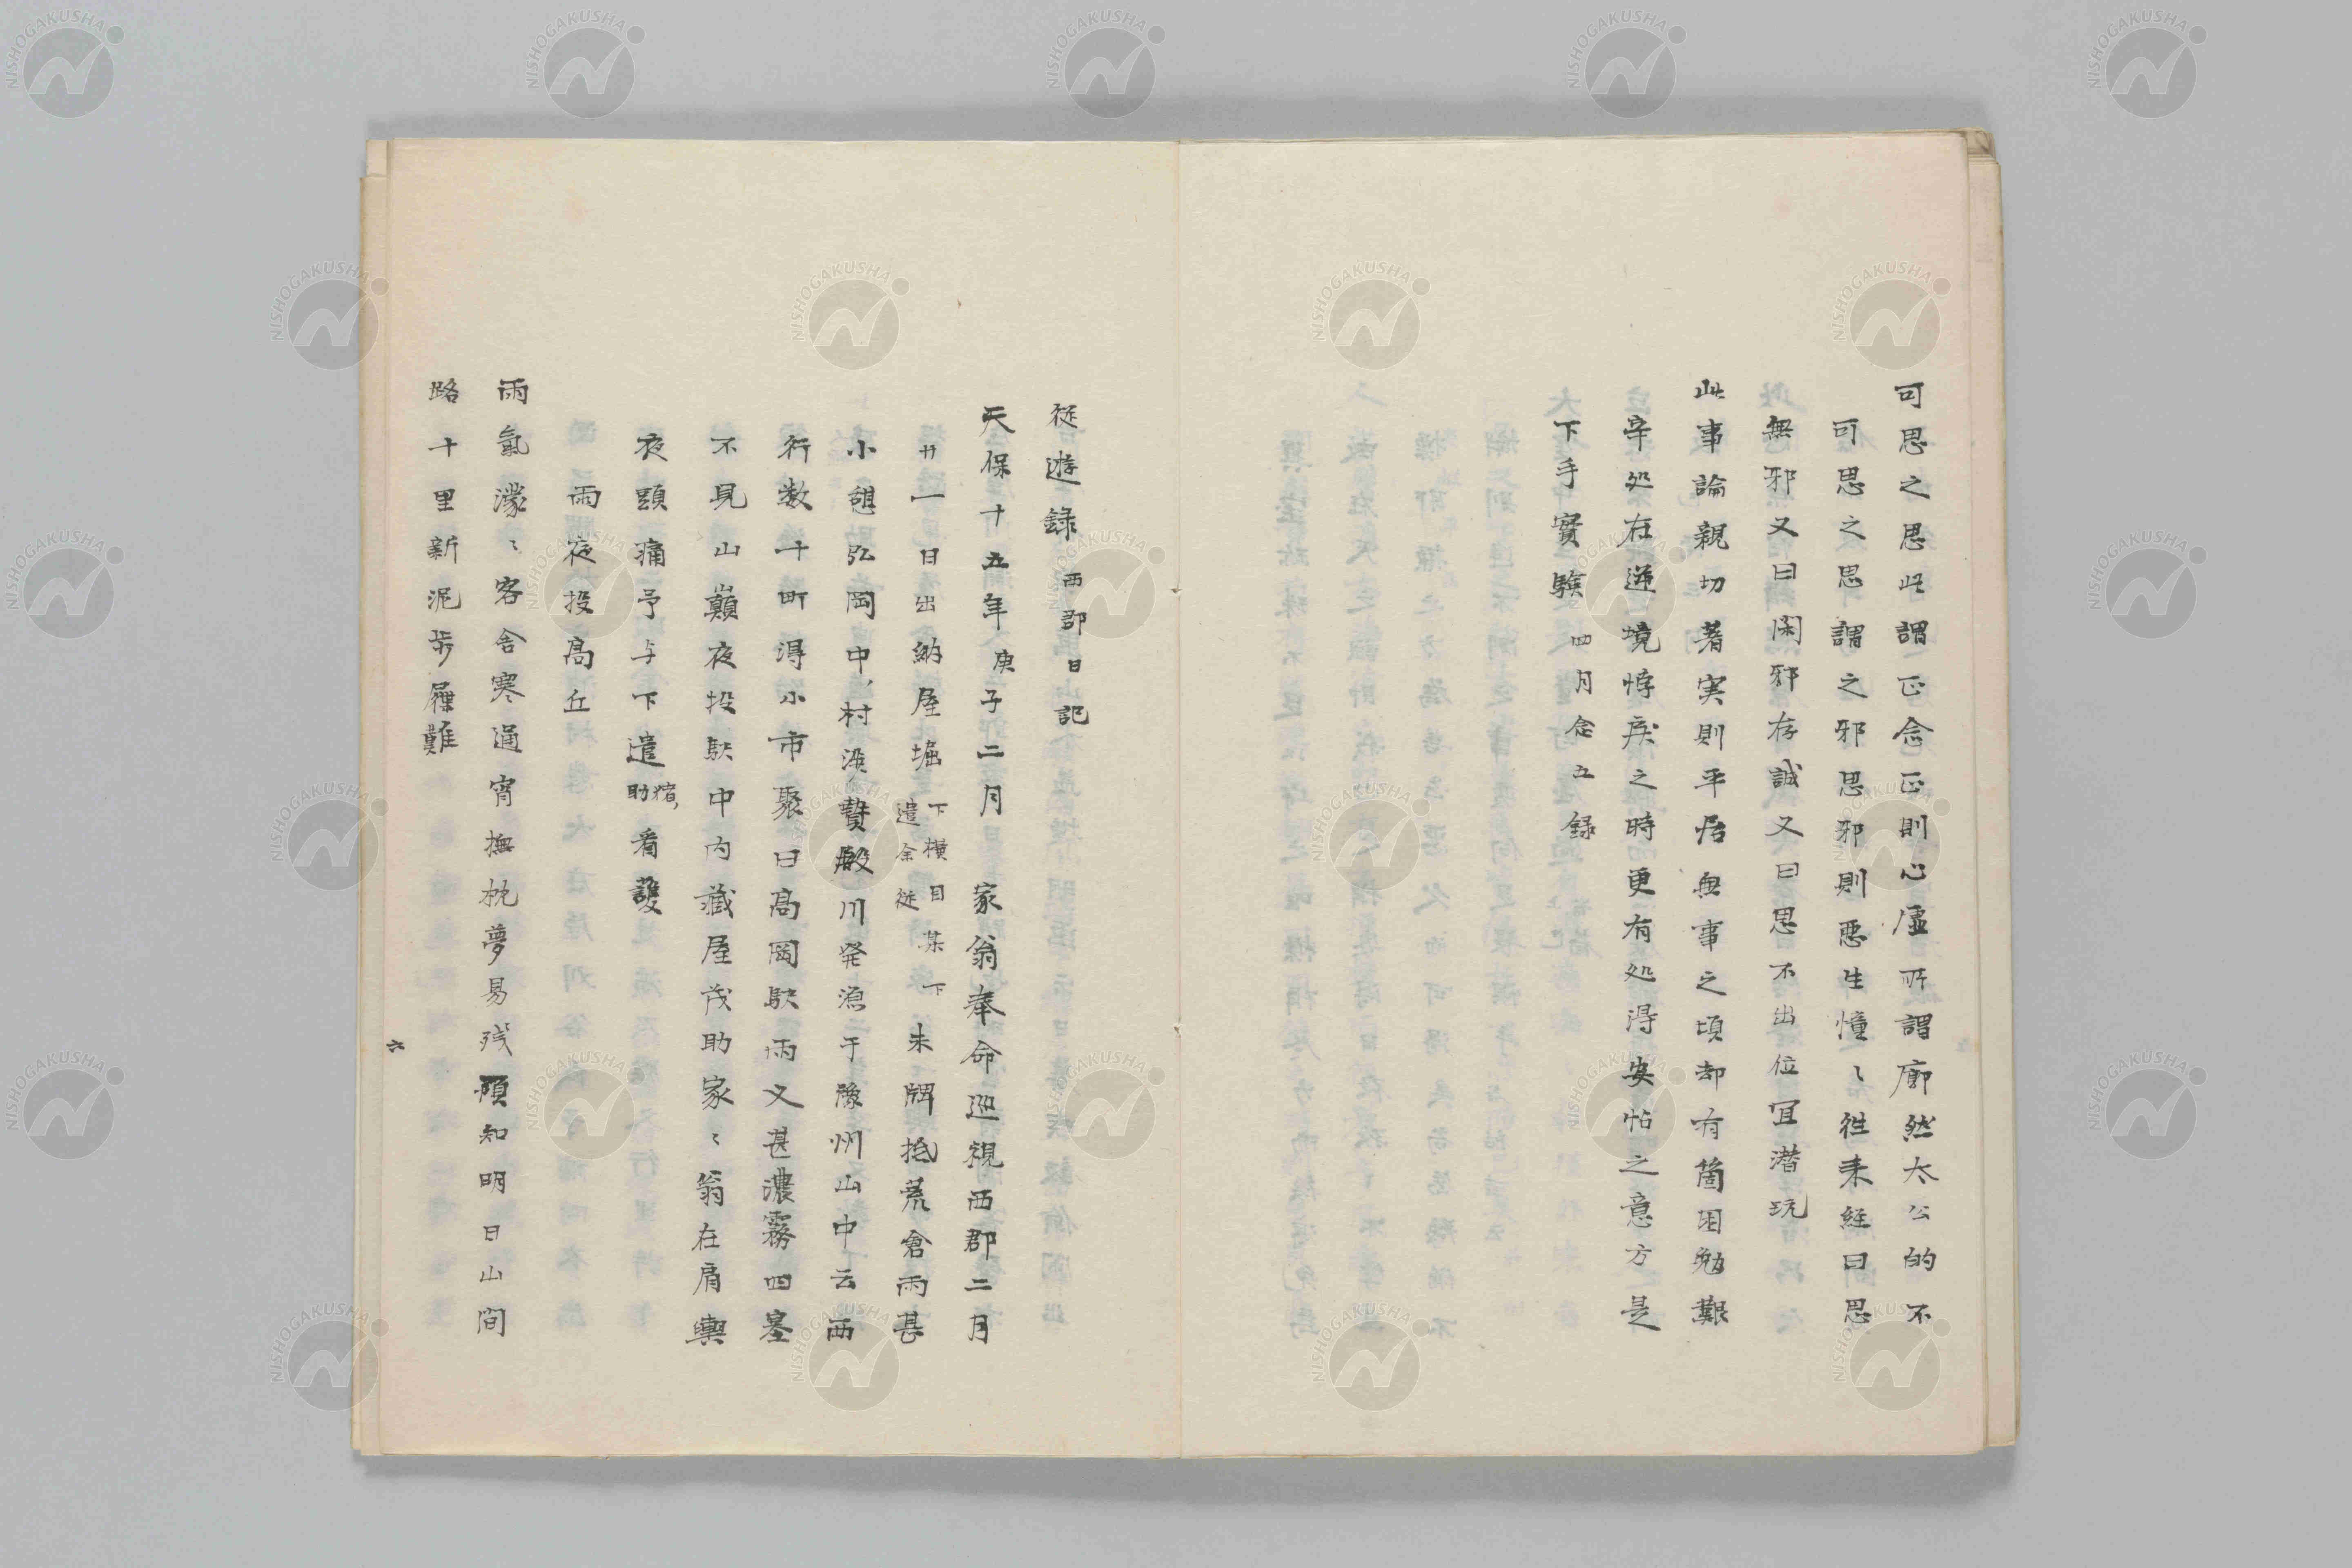 可思之思此謂正念正則心虛所謂廓然太公的不
可思之思謂之邪思邪則惡生憧〻往来経曰思
無邪又曰閑邪存誠又曰思不出位宜潜玩
此事論親切著実則平居無事之頃却有箇困勉艱
辛処在逆境悖戾之時更有処得安怗之意方是
下手實驗 四月念五録
従遊録 西郡日記
天保十五年庚子二月 家翁奉命巡視西郡二月
廿一日出納屋堀 下横目某下遣余従 朱牌抵荒倉雨甚
小憩弘岡中村 贄殿川発源于豫州山中云西
行数十町得小市聚曰高岡駅雨又甚濃霧四塞
不見山巓夜投駅中内藏屋茂助家〻翁在肩輿
夜頭痛予与下遣 助 看護
雨夜投高丘
雨氣濛〻客舎寒通宵撫枕夢易残預知明日山間
路十里新泥歩屧難
六
NISHOGAKUSHA